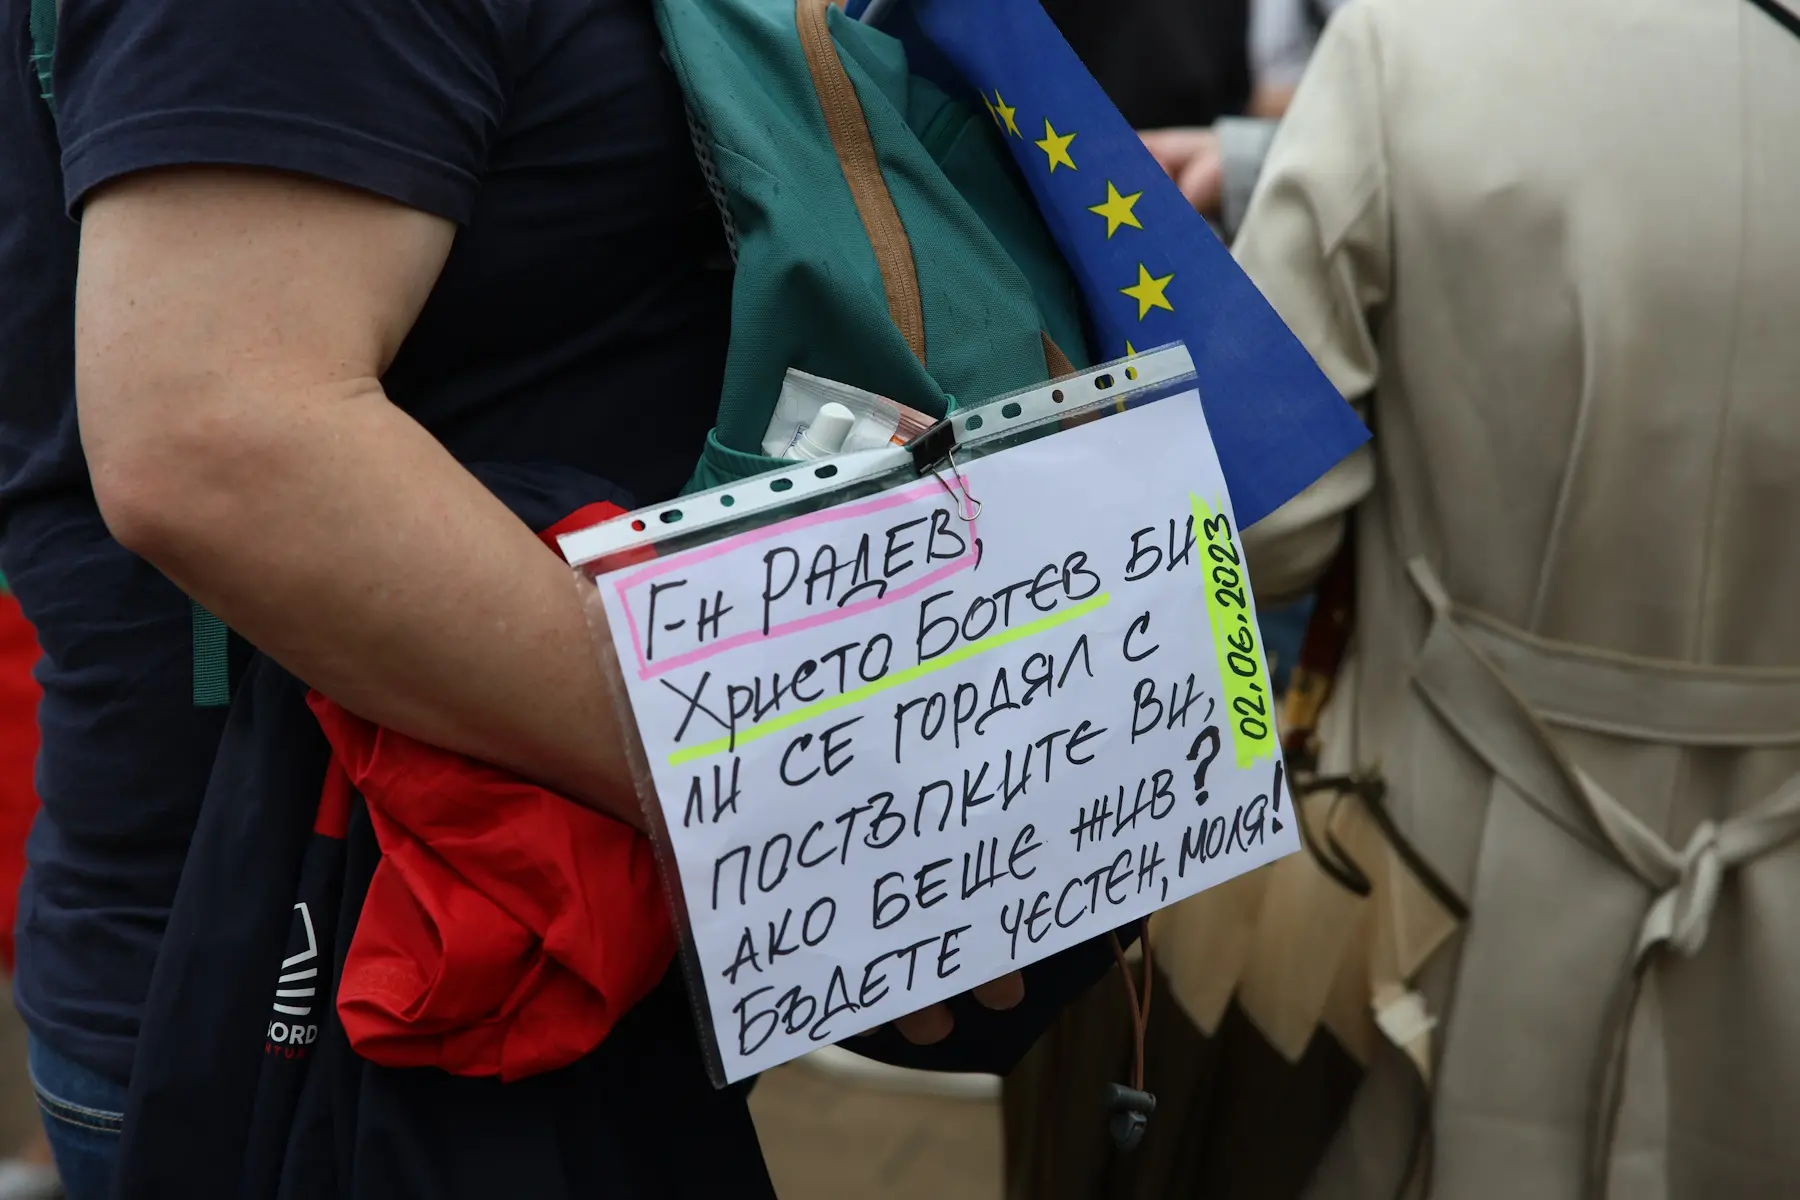 Г-н РАДЕВ,
Христо Ботев БИ
ЛИ СЕ ГОРДЯЛ С
ПОСТЪПКИТЕ ВИ,
АКО БЕШЕ ЖИВ?
БЪДЕТЕ ЧЕСТЕН, МОЛЯ!
02.06.2023